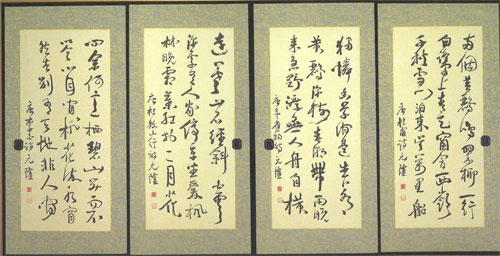 兩個黃鸝鳴翠柳一行
白鷺上青天窗含西嶺
千秋雪門泊東吳萬里船
唐杜甫詩元
獨憐幽草澗邊生上有
黃鸝深樹鳴春潮帶雨晚
來急野渡無人舟自橫
唐韋應物詩元
遠上寒山石徑斜白雲
深處有人家停車坐愛楓
林晚霜葉紅於二月花
唐杜牧山行詩元
問余何意栖碧山笑而不
答心自閑桃花流水窅
然去別有天地非人間
唐李白詩元